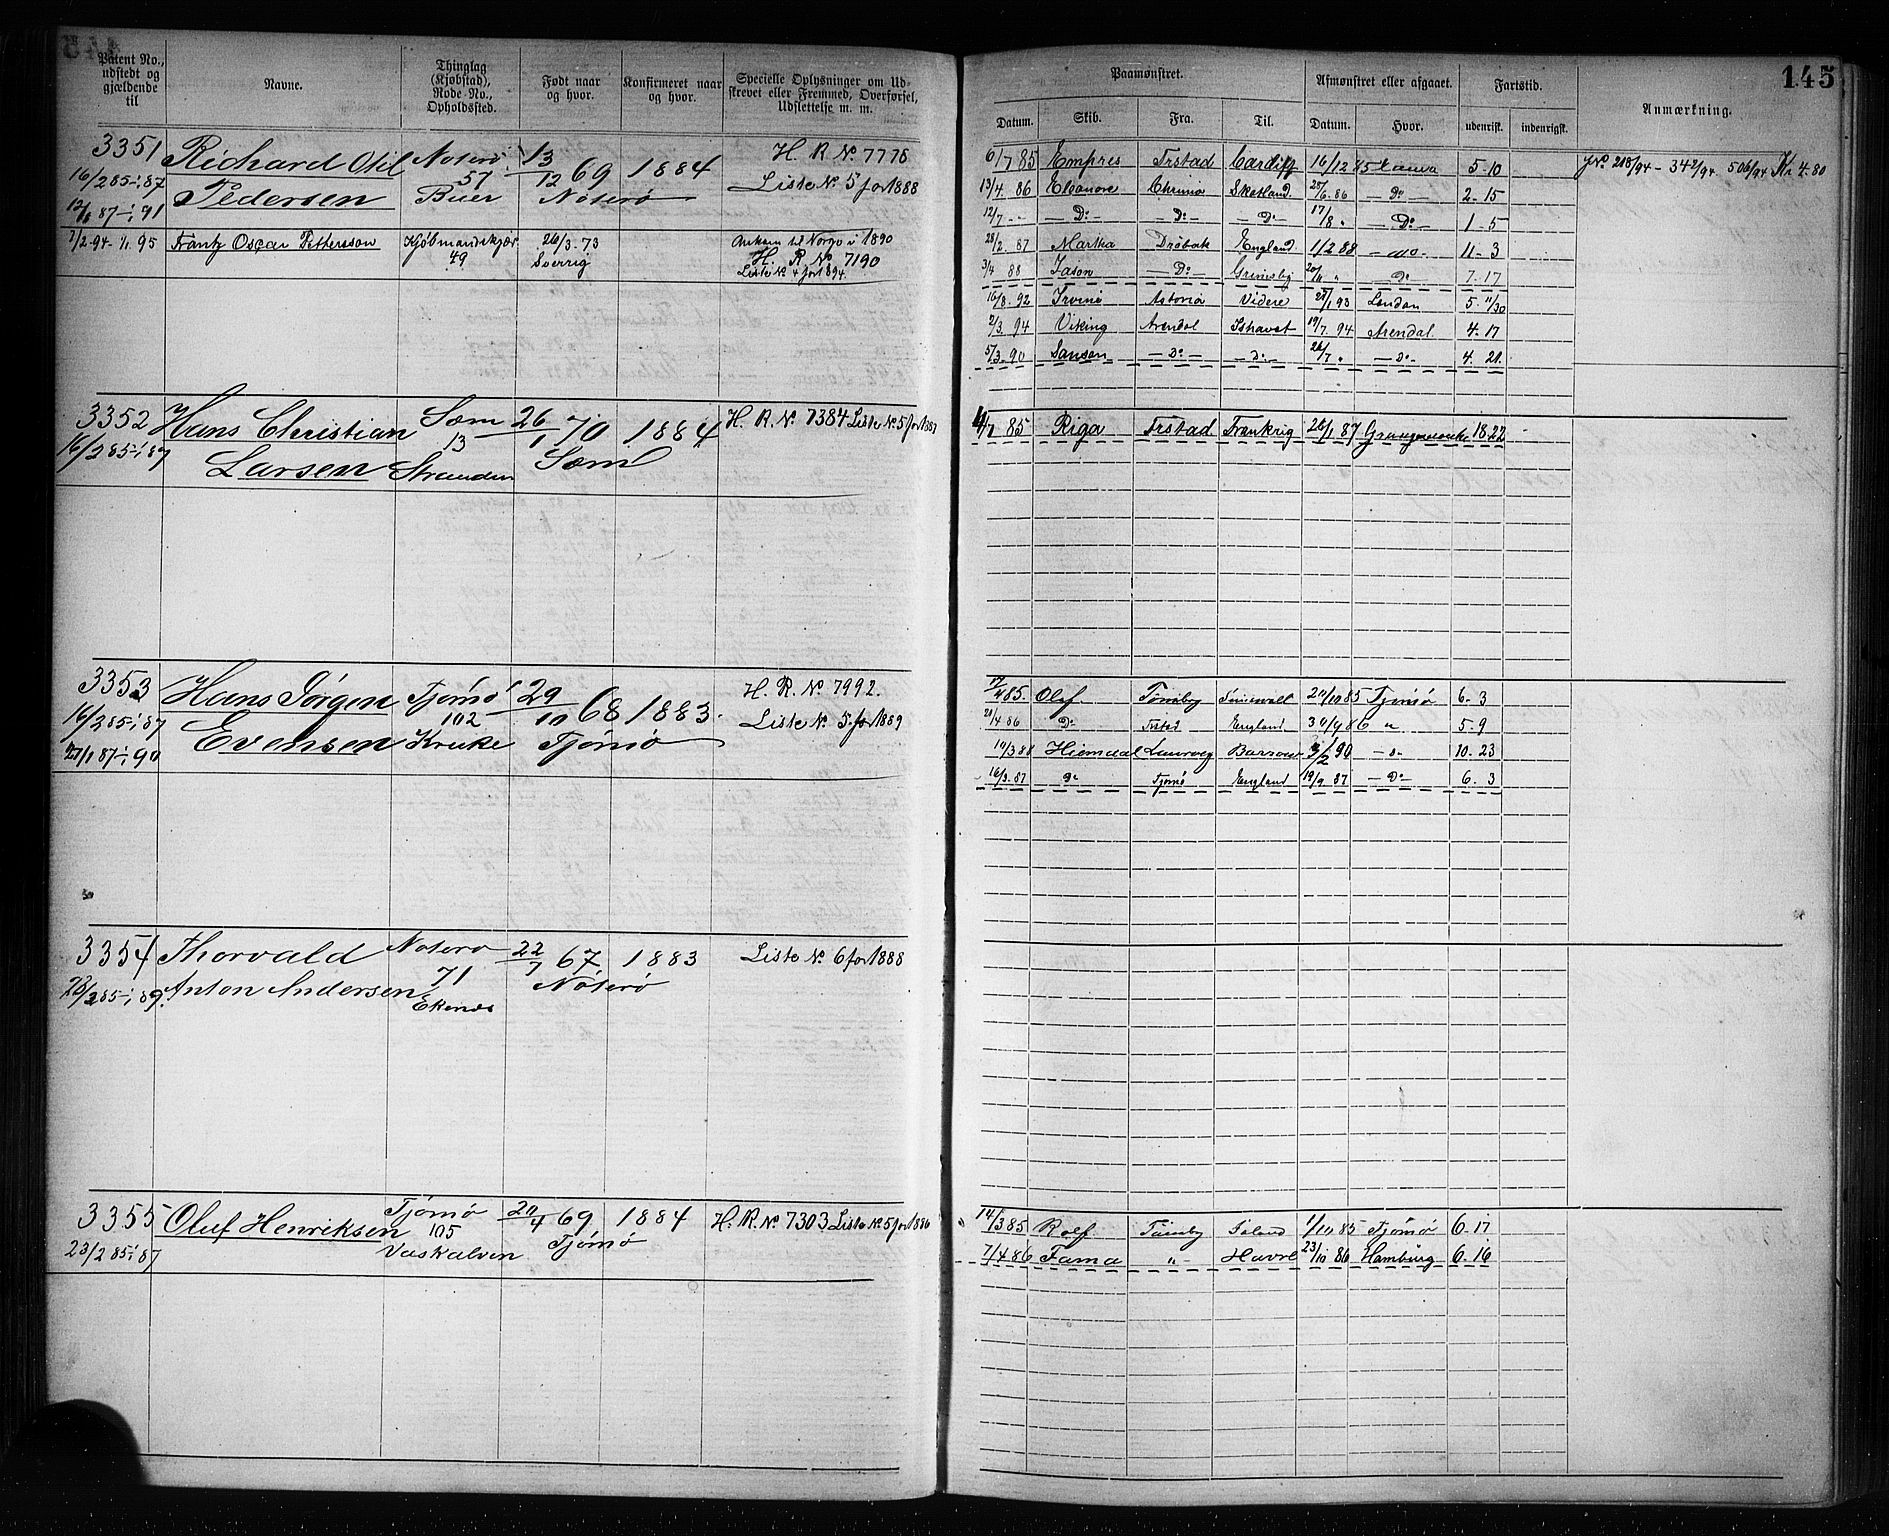 145
Patent No., udstedt og gjældende til
Navne.
Thinglag (Kjøbstad), Rode-No., Opholdssted.
Født naar og hvor.
Konfirmeret naar og hvor.
Specielle Oplysninger om Udskrevet eller Fremmed, Overførsel, Udslettelse m. m.
Paamønstret.
Afmønstret eller afgaaet.
Fartstid.
Anmærkning.
Datum. Skib. Fra. Til. Datum. Hvor. udenrigsk. indenrigsk.
3351 Richard Otil Noterø 13/12 69 1884 H. R. No. 7776
16/2 85-1/1 87 Pedersen 57 Buer Nøterø Liste No. 5 for 1888
12/1 87-1/1 91
7/2-94-1/1 95 Frantz Oscar Pettersson Kjøbmandskjær 49 26/3.73 Sverrig Ankom til Norge i 1890
H. R. No. 7190
Liste No. 4 for 1894
6/7 85 Empres Frstad Cardiff 16/12 85 5-10
13/4. 86 Eleonore Chrina Skotland 25/6.86 — Do — 2-15
12/7 - - — Do — — Do — — Do — 17/8 " Do 1-5
28/2. 87 Martha Drøbak England 1/2 88 — do — 11-3
3/4 88 Jason — Do — Grimsby 20/11 " Do 7-17
16/8.92 Astoria Videre 28/1 93 London 5. 11/30
2/3. 94 Viking Arendal Ishavet 19/7. 94 Arendal 4-17
5/3.90 Sanson — Do — — Do — 26/7 " — Do — 4. 21
JNo 218/94 - 342/94. 506/94 Kr. 4.80
3352 Hans Christian Sæm 26/1 70 1884 H. R. No. 7384 Liste No. 5 for 1887
16/2 85-1/1 87 Larsen 13 Stranden Sæm
4/7 85 Riga Frstad Frankrig 26/1 87 18.22
3353 Hans Jørgen Tjømø 29/10 68 1883. H. R. No 7992.
16/2 85-1/1 87 Evensen 102 Kruke Tjømø Liste No. 5 for 1889
27/1 87-1/1 90
17/4 85. Olaf Tønsbg 20/10 85 Tjømø 6-3
21/4 86 Do Frstad England 30/9 86 " 5-9
10/3 88 Hiemdal Laurvig Barrow 3/2 90 — " — 10-23
16/3.87 Do Tjømø England 19/9 87 — Do — 6-3
3354 Thorvald Noterø 22/7 67 1883 Liste No. 6 for 1888
28/2 85-1/1 89. Anton Andersen 71 Ekenes Nøterø
3355 Oluf Henriksen Tjømø 20/4 69 1884 H. R. No. 7303 Liste No. 5 for 1886
23/2 85-1/1 87 105 Vaskalven Tjømø
14/3 85 Rolf Tønsbg Island 1/10 85 Tjømø 6.17
7/4 86 Fama " Havre 23/10 86 Hamburg 6.16